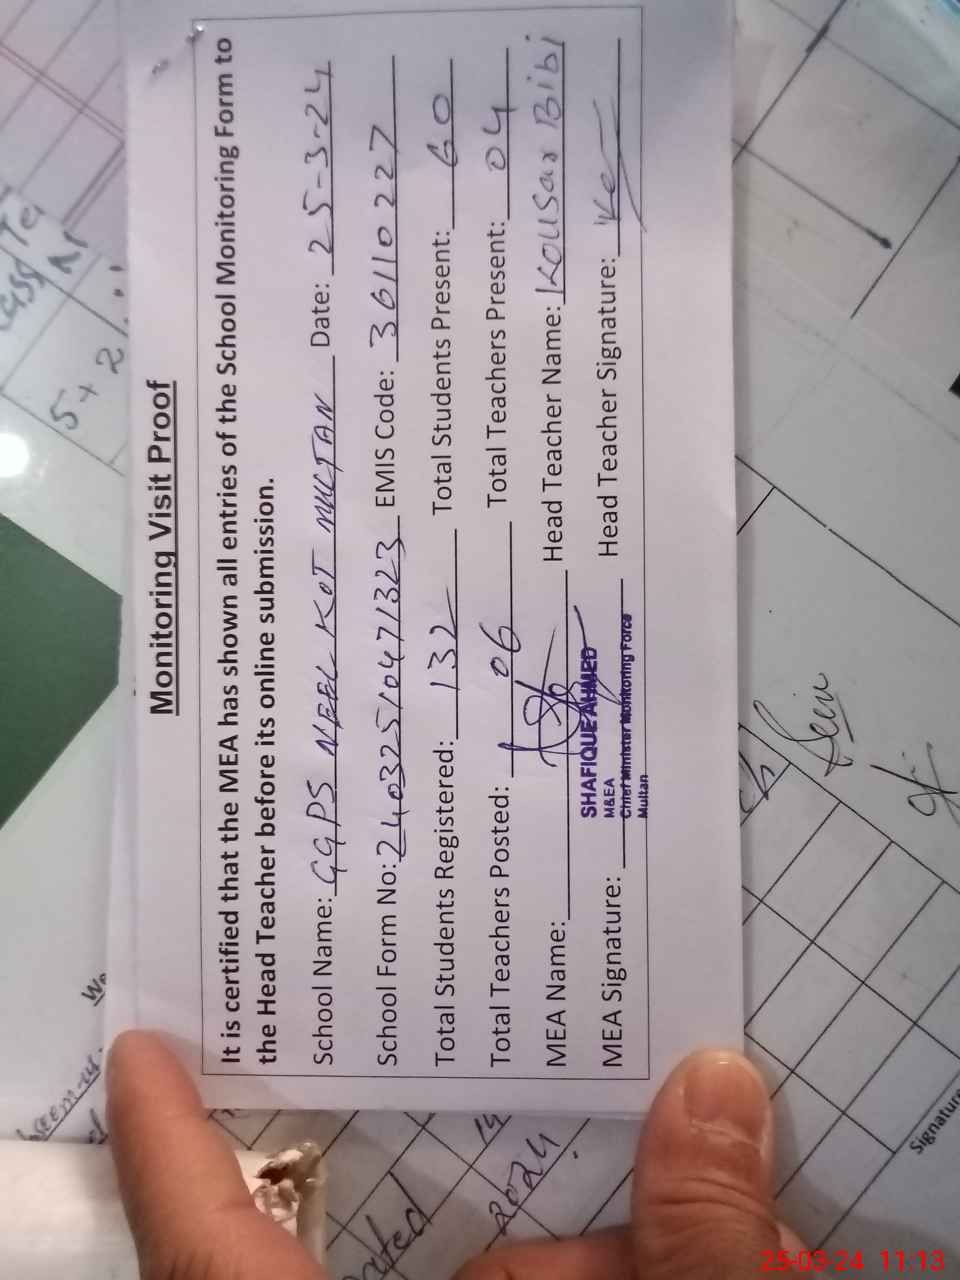 Monitoring Visit Proof
It is certified that the MEA has shown all entries of the School Monitoring Form to
the Head Teacher before its online submission.
School Name: GGPS NEEL KOT MULTAN Date: 25-3-24
School Form No: 24032510471323 EMIS Code: 36110227
Total Students Registered: 132 Total Students Present: 60
Total Teachers Posted: 06 Total Teachers Present: 04
MEA Name: Head Teacher Name: Kousar Bibi
SHAFIQUE AHMED
M&EA
Chief Minister Monitoring Force
Multan
MEA Signature: Head Teacher Signature:
5+2
2024
Signature
25-03-24 11:13